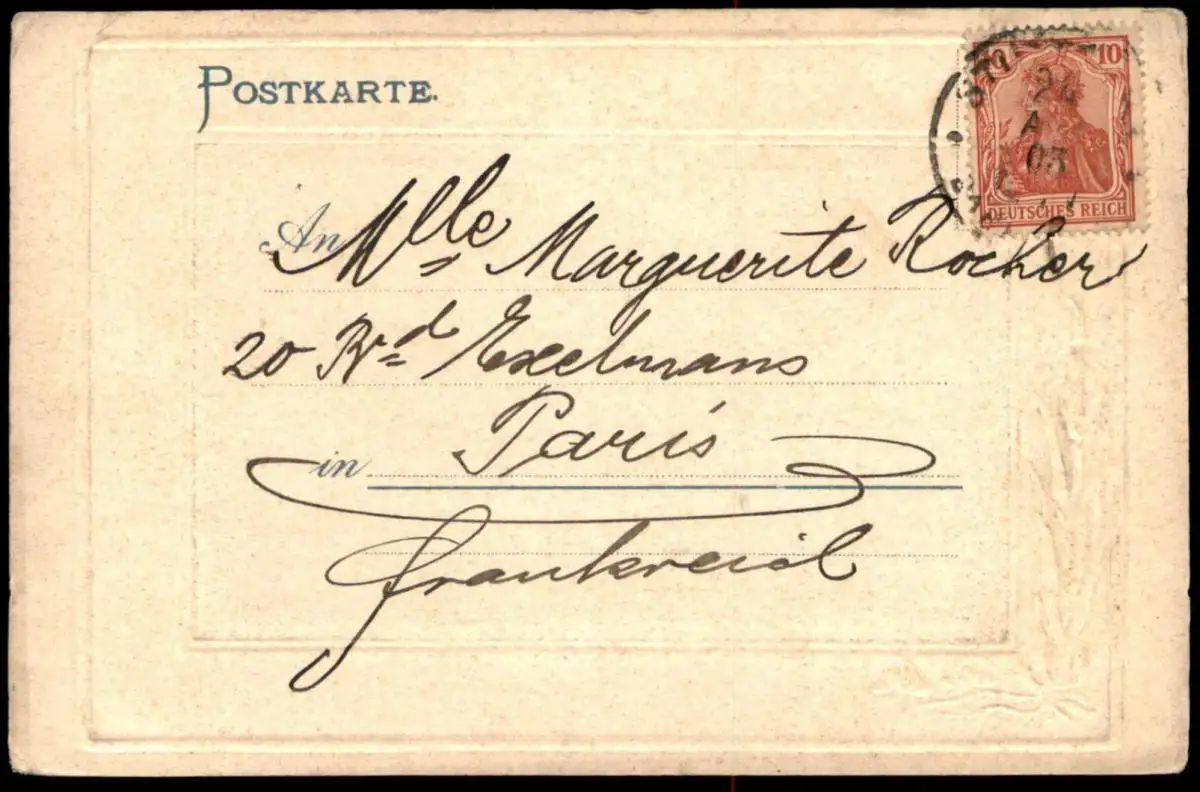 POSTKARTE.
10
24
A
03
DEUTSCHES REICH
An Mlle Marguerite Rocher
20 Bvd Exelmans
in Paris
Frankreich